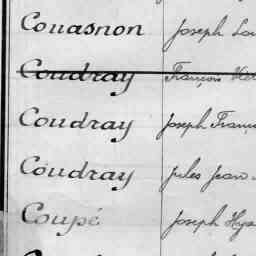 Couasnon Joseph
Coudray François
Coudray Joseph
Coudray Jules Jean
Coupé Joseph